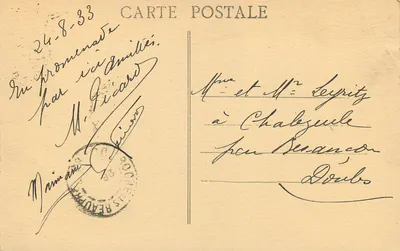 CARTE POSTALE
24-8-33
En promenade
par ici
amitiés.
M. Picard
Mme et Mr Leyritz
à Chalezeule
par Besançon
Doubs